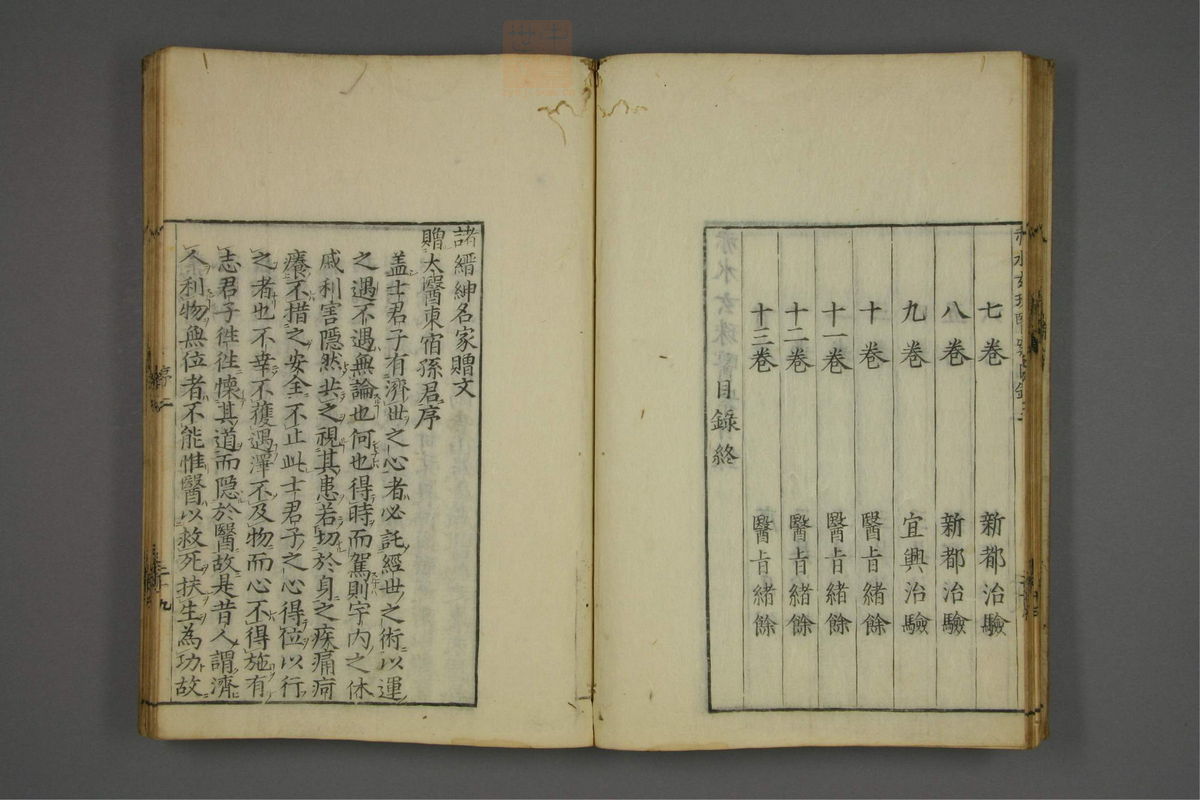 七卷 新都治驗
八卷 新都治驗
九卷 宜興治驗
十卷 醫旨緒餘
十一卷 醫旨緒餘
十二卷 醫旨緒餘
十三卷 醫旨緒餘
目錄終
諸縉紳名家贈文
贈太醫東宿孫君序
盖士君子有濟世之心者必託經世之術以運
之遇不遇無論也何也得時而駕則宇内之休
戚利害隠然共之視其患若切於身之疾痛疴
癢不措之安全不止此士君子之心得位以行
之者也不幸不獲遇澤不及物而心不得施有
志君子徃徃懐其道而隠於醫故是昔人謂濟
人利物無位者不能惟醫以救死扶生為功故